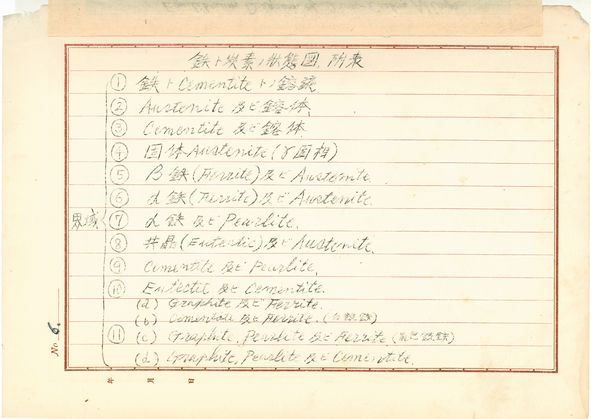 鉄ト炭素ノ状態図 附表
① 鉄トCementiteトノ鎔融
② Austenite 及ビ鎔体
③ Cementite 及ビ鎔体
④ 固体Austenite (γ固相)
⑤ β鉄(Ferrite)及ビAustenite
⑥ α鉄(Ferrite)及ビAustenite
界域 ⑦ α鉄 及ビPearlite.
⑧ 共晶(Eutectic)及ビAustenite.
⑨ Cementite 及ビ Pearlite.
⑩ Eutectic 及ビ Cementite.
(a) Graphite 及ビ Ferrite.
(b) Cementite 及ビ Ferrite.
⑪ (c) Graphite, Pearlite 及ビ Ferrite
(d) Graphite, Pearlite 及ビ Cementite.
No 6.
年 月 日